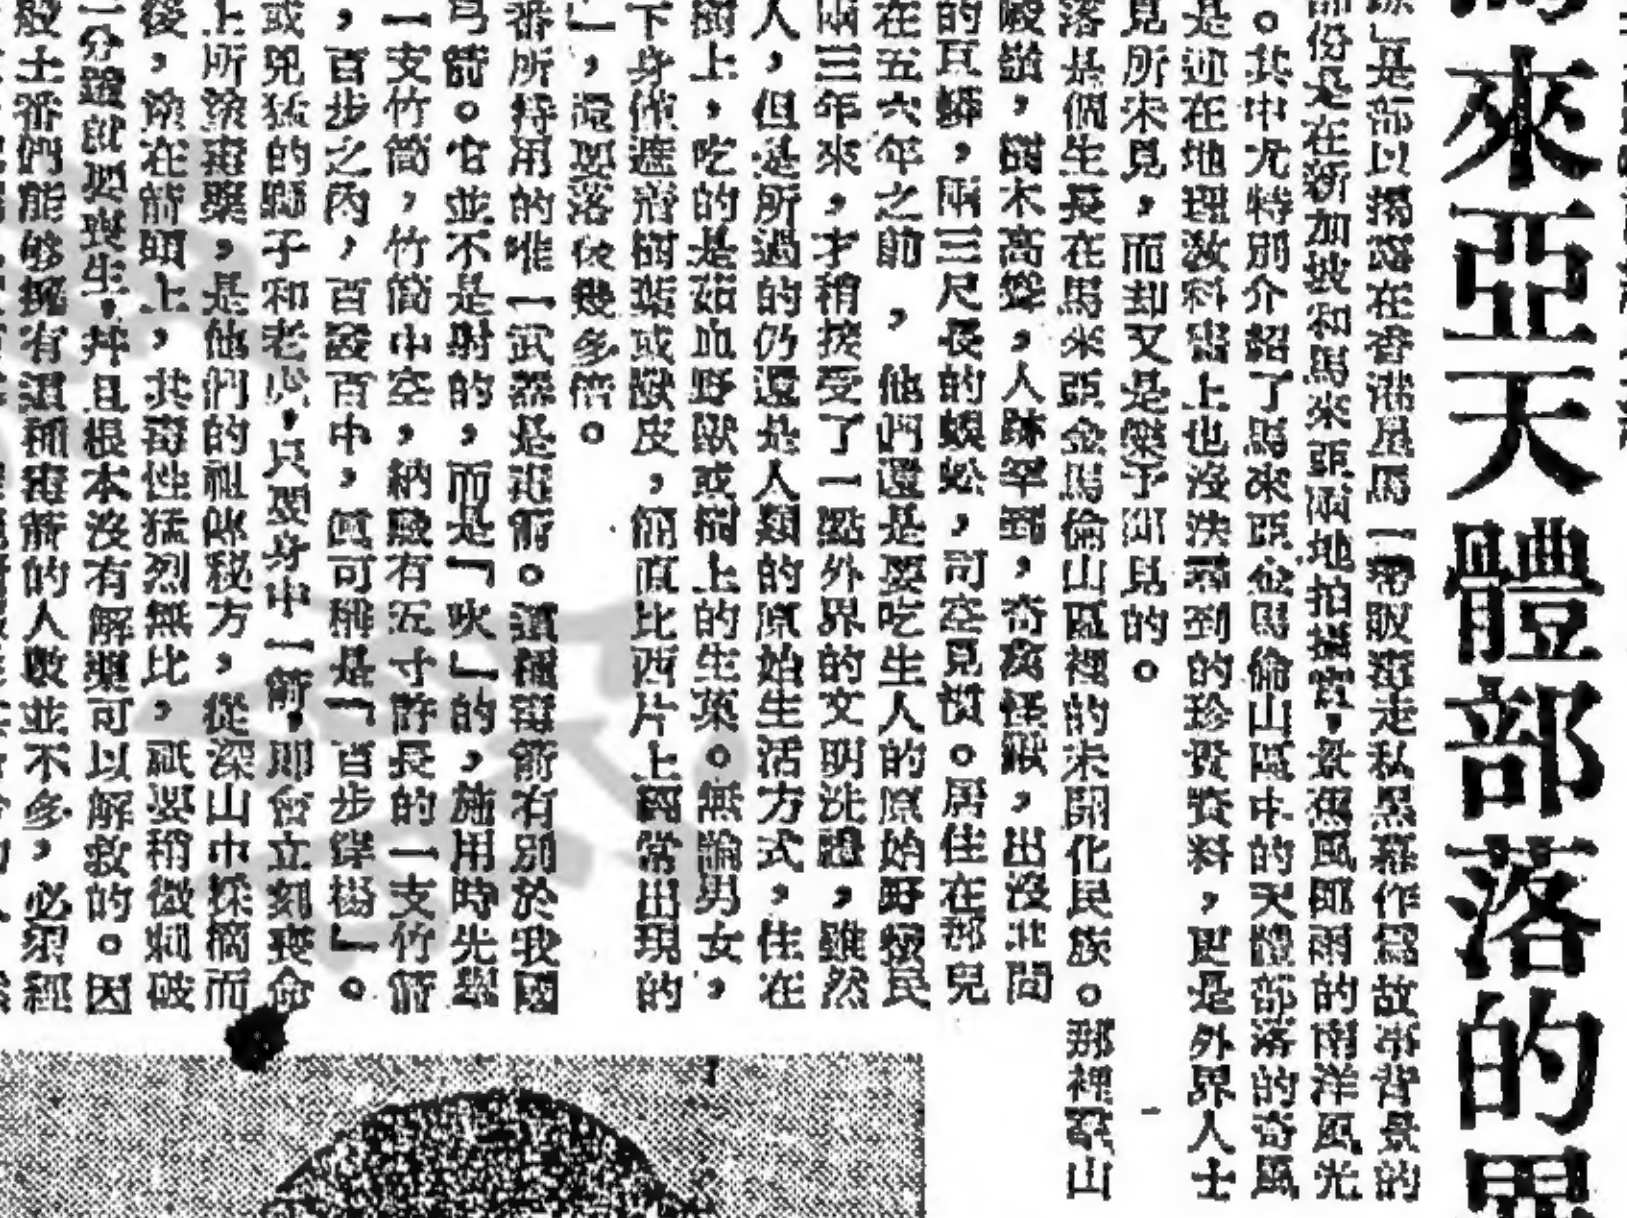 來亞天體部落的
」是部以揭露在香港星馬一帶販毒走私黑幕作爲故事背景的
部份是在新加坡和馬來亞兩地拍攝實景,蕉風椰雨的南洋風光
。其中尤特別介紹了馬來亞金馬倫山區中的天體部落的奇風
是迎在地理敎科書上也沒法尋到的珍貴資料,更是外界人士
見所未見,而却又是樂予聞見的。
落是個生長在馬來亞金馬倫山區裡的未開化民族。那裡羣山
峻嶺,樹木高聳,人跡罕到,奇禽怪獸,出沒其間
的巨蟒,兩三尺長的蜈蚣,司空見慣。居住在那兒
在五六年之前,他們還是要吃生人的原始野蠻民
兩三年來,才稍接受了一點外界的文明洗禮,雖然
人,但是所過的仍還是人類的原始生活方式,住在
樹上,吃的是茹血野獸或樹上的生菓。無論男女,
下身僅遮着樹葉或獸皮,簡直比西片上國常出現的
」,還要落後幾多倍。
番所持用的唯一武器是毒箭。這種毒箭有別於我國
弓箭。它並不是射的,而是「吹」的,施用時先舉
一支竹筒,竹筒中空,納藏有五寸許長的一支竹箭
,百步之內,百發百中,眞可稱是「百步穿楊」。
或兇猛的野子和老虎,只要身中一箭,則會立刻喪命
上所塗毒藥,是他們的祖傳秘方,從深山中採摘而
後,塗在箭頭上,其毒性猛烈無比,祇要稍微觸破
一分鐘就要喪生,幷且根本沒有解藥可以解救的。因
般土番們能够擁有這種毒箭的人數並不多,必須經